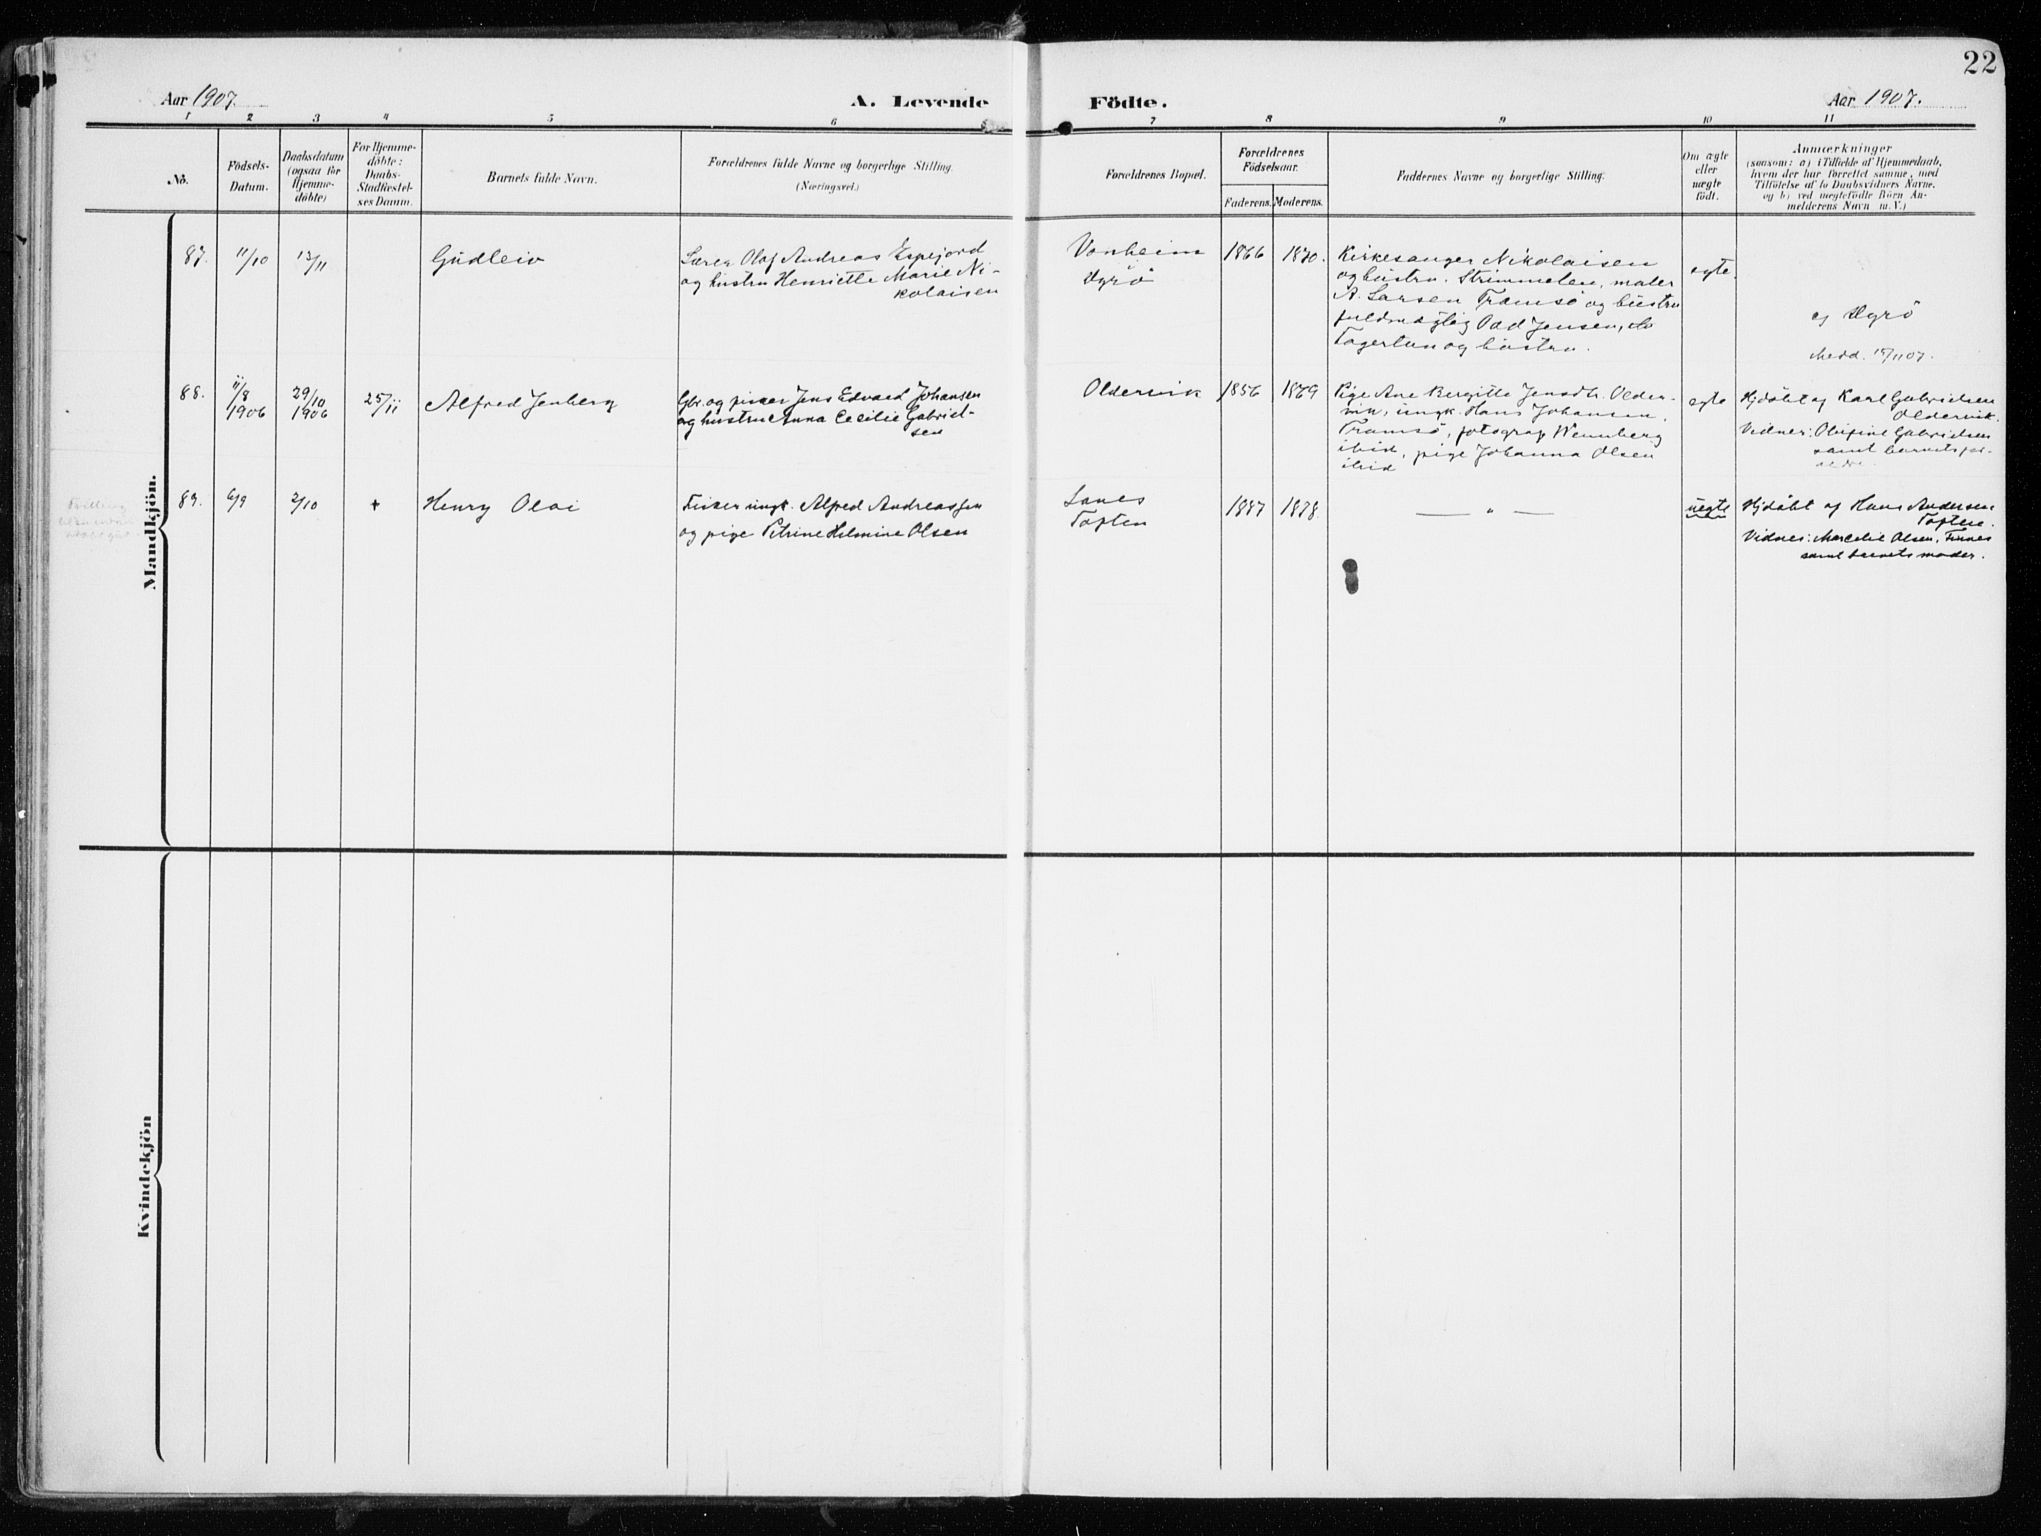 22
Aar 1907.
A. Levende Födte.
Aar 1907.
1 2 3 4 5 6 7 8 9 10 11
No.
Födsels-
Datum.
Daabsdatum
(ogsaa for
Hjemme-
döbte)
For Hjemme-
döbte:
Daabs-
Stadfæstel-
ses Datum.
Barnets fulde Navn.
Forældrenes fulde Navne og borgerlige Stilling.
(Næringsvei.)
Forældrenes Bopæl.
Forældrenes
Födselsaar.
Faderens. Moderens.
Faddernes Navne og borgerlige Stilling.
Om ægte
eller
uægte
födt.
Anmærkninger
(saasom: a) i Tilfælde af Hjemmedaab,
hvem der har forrettet samme, med
Tilföielse af to Daabsvidners Navne.
og b) ved uægtefödte Börn An-
melderens Navn m. V.)
Mandkjön.
87.
11/10
13/11
Gudleiv
Lærer Olaf Andreas Espejord
og hustru Henriette Marie Ni-
kolaisen
Vonheim
1866
1870.
Kirkesanger Nikolaisen
og hustru. Strimmelen, maler
A. Larsen Tromsö og hustru
fuldmægtig Odd Jensen, do
og hustru.
egte.
Medd. 15/11 07.
88.
11/8
1906
29/10
1906
25/11
Alfred Jenberg
Gbr. og fisker Jens Edvard Johansen
og hustru Anna Cecilie Gabriel-
sen
Oldervik
1856
1869
Pige Ane Bergitte Jensdtr. Older-
vik, ungk. Hans Johansen,
Tromsö, fotograf Wennberg
ibid, pige Johanna Olsen
ibid
egte
Hjdöbt af Karl Gabrielsen
Oldervik.
Vidner: Olufine Gabrielsen
samt barnets for-
ældre.
89.
6/9
2/10
+
Henry Olai
Fisker ungk. Alfred Andreassen
og pige Petrine Helmine Olsen
Toften
1887
1878.
— " —
uegte
Hjdöbt af Hans Andersen
Toften.
Vidner: Marcelie Olsen,
samt barnets moder.
Kvindekjön